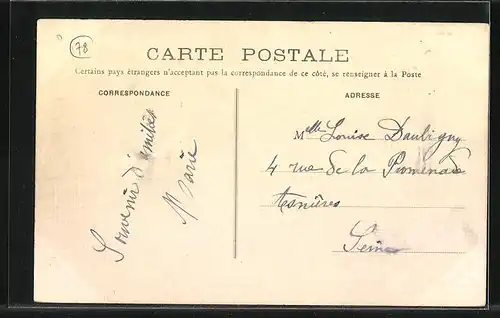 78
CARTE POSTALE
Certains pays étrangers n'acceptant pas la correspondance de ce côté, se renseigner à la Poste
CORRESPONDANCE
Souvenir d'amitiés
Marie
ADRESSE
Melle Louise Daubigny
4 rue de la Promenade
Asnières
Seine